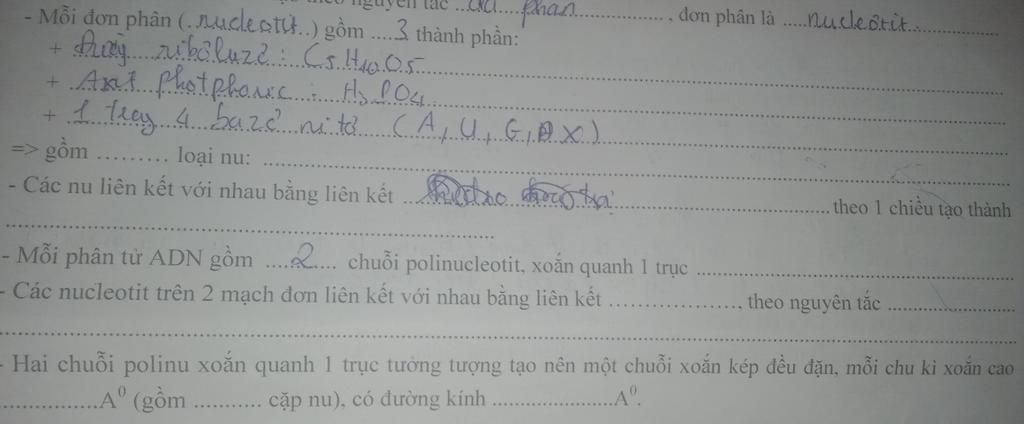 nguyên tắc ...đa phân..., đơn phân là ...nucleotit...
- Mỗi đơn phân (.nucleotit..) gồm ....3 thành phần:
+ Đường ribôluzơ : C5H10O5
+ Axit photphoric : H3PO4
+ 1 trong 4 bazơ nitơ (A, U, G, X)
=> gồm ......... loại nu: ...
- Các nu liên kết với nhau bằng liên kết ... theo 1 chiều tạo thành
...
- Mỗi phân tử ADN gồm .....2.... chuỗi polinucleotit, xoắn quanh 1 trục ...
- Các nucleotit trên 2 mạch đơn liên kết với nhau bằng liên kết ................, theo nguyên tắc ...
...
- Hai chuỗi polinu xoắn quanh 1 trục tưởng tượng tạo nên một chuỗi xoắn kép đều đặn, mỗi chu kì xoắn cao
...............A⁰ (gồm ........... cặp nu), có đường kính ....................A⁰.